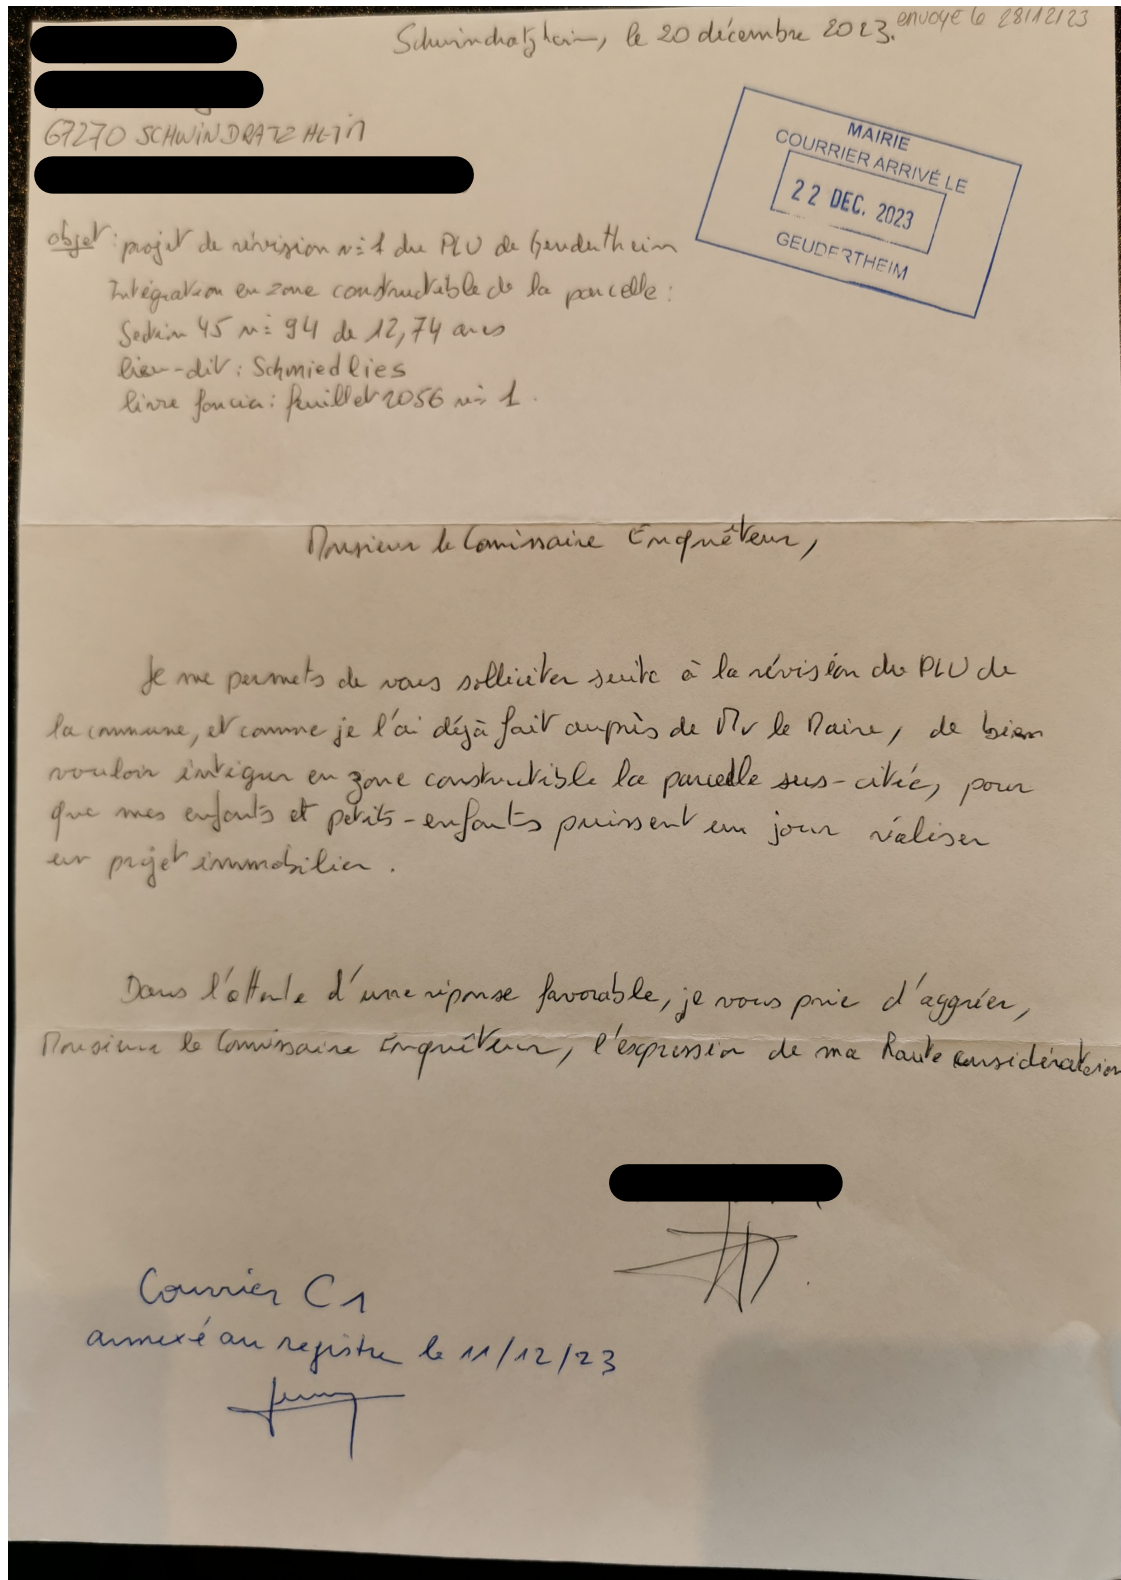 Schwindratzheim, le 20 décembre 2023.
envoyé le 28/12/23
67270 SCHWINDRATZHEIM
MAIRIE
COURRIER ARRIVÉ LE
22 DEC. 2023
GEUDERTHEIM
objet : projet de révision n° 1 du PLU de Geudertheim
Intégration en zone constructible de la parcelle :
Section 45 n° 94 de 12,74 ares
lieu-dit : Schmiedlies
livre foncier : feuillet 2056 n° 1.
Monsieur le Comissaire Enquêteur,
Je me permets de vous solliciter suite à la révision du PLU de
la commune, et comme je l'ai déjà fait auprès de Mr le Maire, de bien
vouloir intégrer en zone constructible la parcelle sus-citée, pour
que mes enfants et petits-enfants puissent un jour réaliser
un projet immobilier.
Dans l'attente d'une réponse favorable, je vous prie d'aggréer,
Monsieur le Comissaire Enquêteur, l'expression de ma haute considération
Courrier C1
annexé au registre le 11/12/23